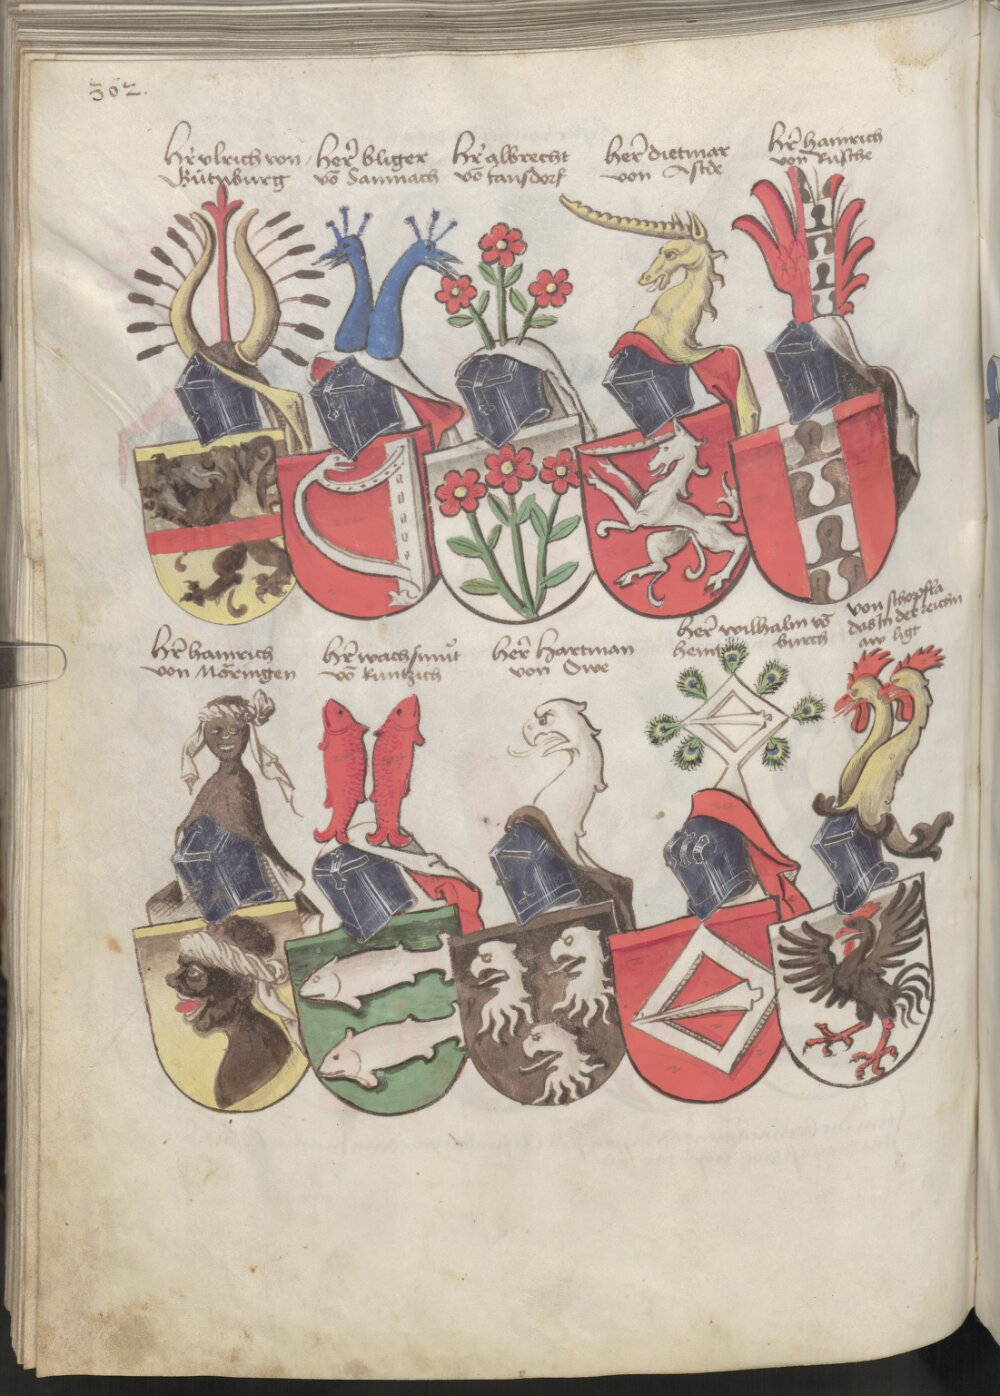 362.
Hr̃ vlrich von
Gůtnburg
Her̃ bliger
vō Sannach
Hr̃ albrecht
vō tansdorf
Her̃ dietmar
von Astde
Hr̃ hainrich
von Rusche
Hr̃ hainrich
von Möringen
Hr̃ wachsmut
vō kuntzich
Her̃ Hartman
von Owe
Her̃ wilhalm vō
heint burch
von schopfla
das In der reichn
aw ligt